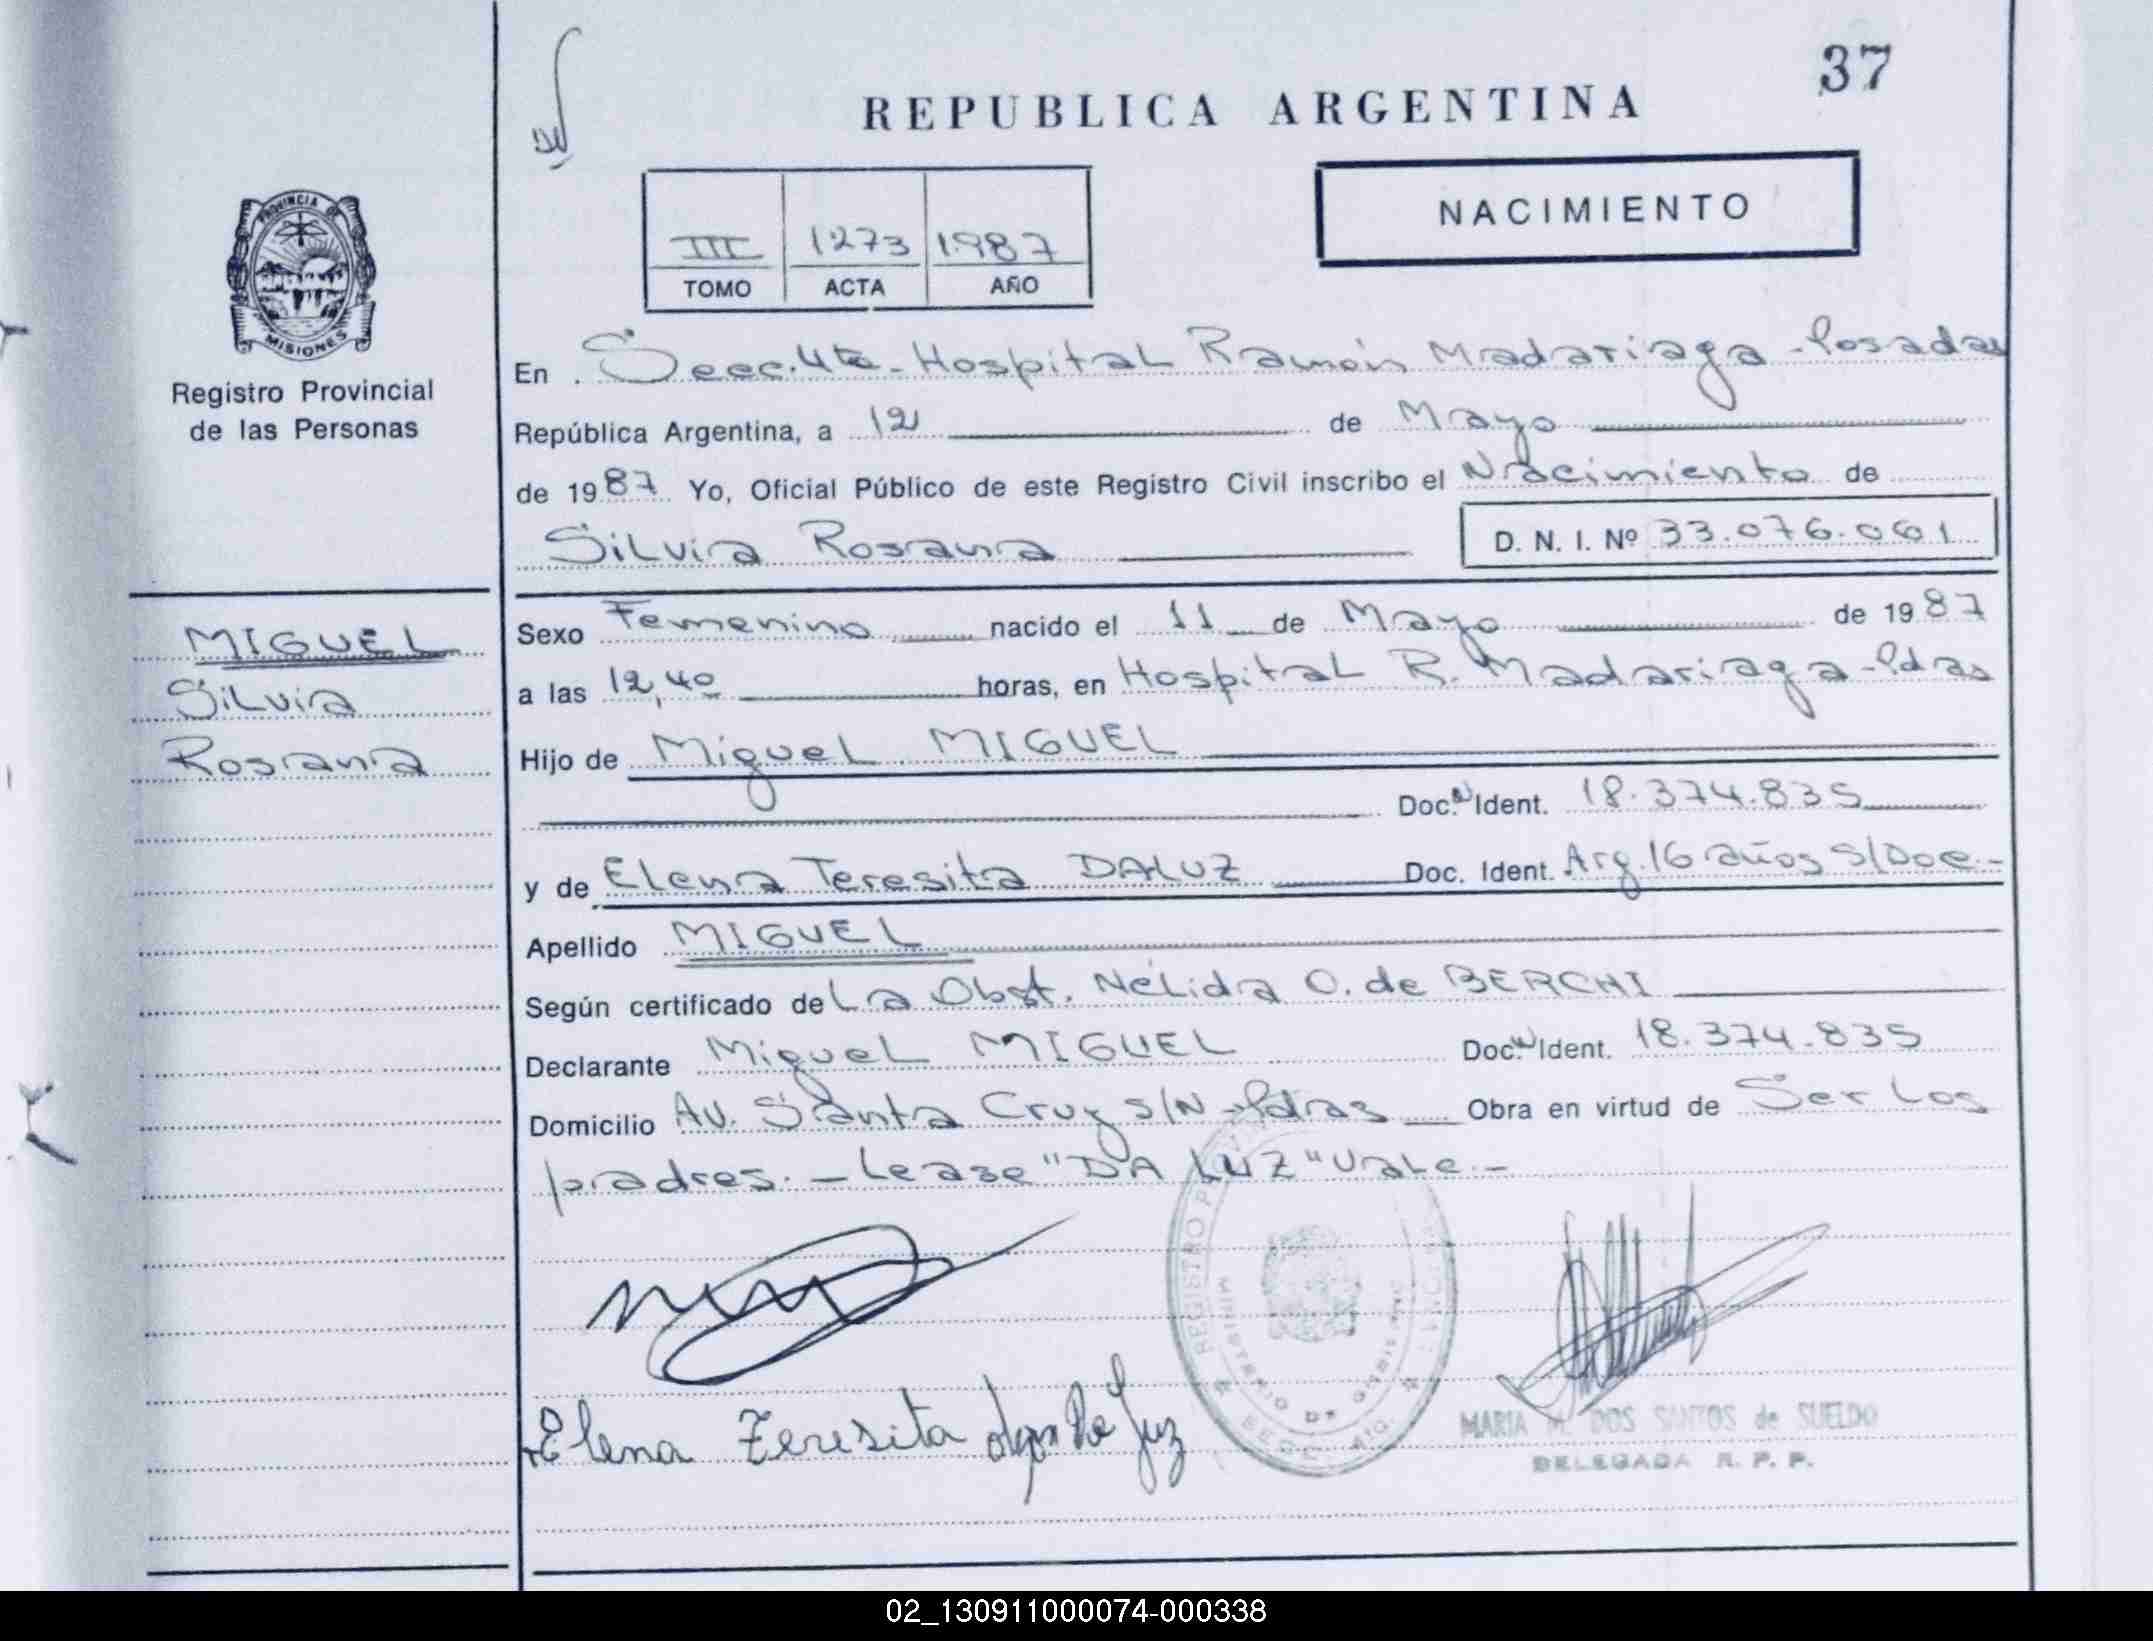 37
REPUBLICA ARGENTINA
NACIMIENTO
III 1273 1987
TOMO ACTA AÑO
PROVINCIA DE
MISIONES
Registro Provincial
de las Personas
En Secc. 4ta - Hospital Ramón Madariaga - Posadas
República Argentina, a 12 de Mayo
de 1987 Yo, Oficial Público de este Registro Civil inscribo el Nacimiento de
Silvia Rosana D. N. I. Nº 33.076.061
MIGUEL
Silvia
Rosana
Sexo Femenino nacido el 11 de Mayo de 1987
a las 12,40 horas, en Hospital R. Madariaga - Pdas
Hijo de Miguel MIGUEL
Doc. N Ident. 18.374.835
y de Elena Teresita DALUZ Doc. Ident. Arg. 16 años S/Doc.-
Apellido MIGUEL
Según certificado de La Obst. Nélida O. de BERCHI
Declarante Miguel MIGUEL Doc. N Ident. 18.374.835
Domicilio Av. Santa Cruz S/N - Pdas Obra en virtud de Ser los
padres. - Lease "DA LUZ" Vale.-
REGISTRO
MINISTERIO DE
Elena Teresita
MARIA M. DOS SANTOS de SUELDO
DELEGADA R. P. P.
02_130911000074-000338